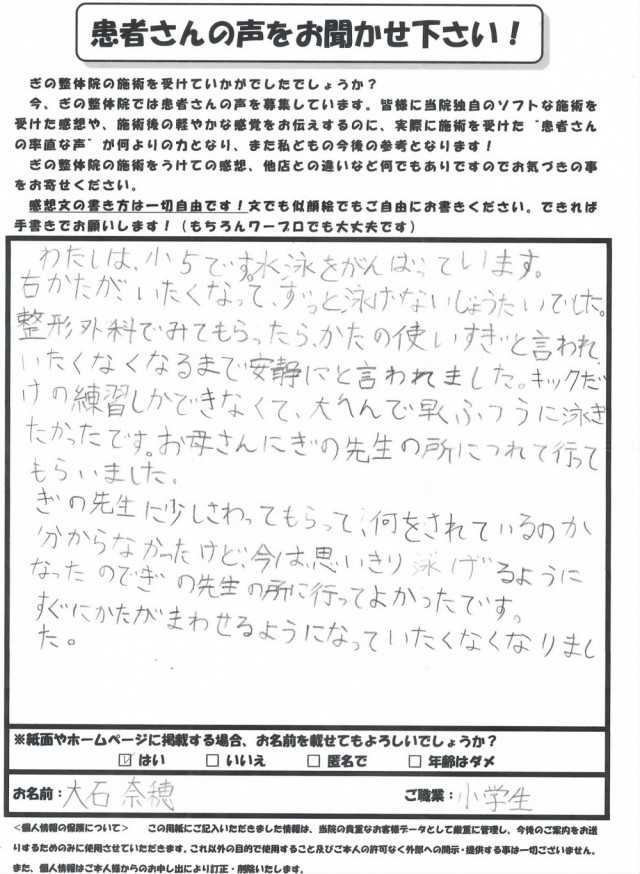 患者さんの声をお聞かせ下さい！
ぎの整体院の施術を受けていかがでしたでしょうか？
今、ぎの整体院では患者さんの声を募集しています。皆様に当院独自のソフトな施術を
受けた感想や、施術後の軽やかな感覚をお伝えするのに、実際に施術を受けた〝患者さん
の率直な声〞が何よりの力となり、また私どもの今後の参考となります！
ぎの整体院の施術をうけての感想、他店との違いなど何でもありですのでお気づきの事
をお寄せください。
感想文の書き方は一切自由です！文でも似顔絵でもご自由にお書きください。できれば
手書きでお願いします！（もちろんワープロでも大丈夫です）
わたしは、小5です。水泳をがんばっています。
右かたがいたくなって、ずっと泳げないじょうたいでした。
整形外科でみてもらったら、かたの使いすぎと言われ、
いたくなくなるまで安静にと言われました。キックだ
けの練習しかできなくて、大へんで早くふつうに泳ぎ
たかったです。お母さんにぎの先生の所につれて行って
もらいました。
ぎの先生に少しさわってもらって、何をされているのか
分からなかったけど、今は、思いきり泳げるように
なったのでぎの先生の所に行ってよかったです。
すぐにかたがまわせるようになっていたくなくなりまし
た。
※紙面やホームページに掲載する場合、お名前を載せてもよろしいでしょうか？
☑ はい □ いいえ □ 匿名で □ 年齢はダメ
お名前：大石 奈穂 ご職業：小学生
＜個人情報の保護について＞ この用紙にご記入いただきました情報は、当院の貴重なお客様データとして厳重に管理し、今後のご案内をお送
りするためのみに使用させていただきます。これ以外の目的で使用すること及びご本人の許可なく外部への開示・提供する事は一切ございません。
また、個人情報はご本人様からのお申し出により訂正・削除いたします。